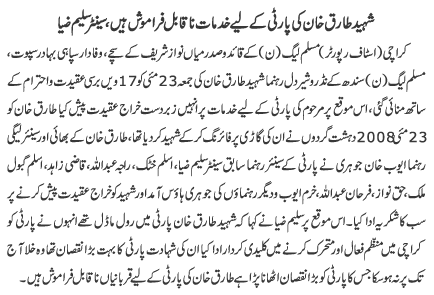 شہید طارق خان کی پارٹی کے لیے خدمات ناقابل فراموش ہیں، سینیٹر سلیم ضیا
کراچی (اسٹاف رپورٹر) مسلم لیگ (ن) کے قائد و صدر میاں نواز شریف کے سچے، وفادار سپاہی بہادر سپوت،
مسلم لیگ (ن) سندھ کے نڈر و شیر دل رہنما شہید طارق خان کی جمعہ 23 مئی کو 17 ویں برسی عقیدت و احترام کے
ساتھ منائی گئی، اس موقع پر مرحوم کی پارٹی کے لیے خدمات پر انہیں زبردست خراج عقیدت پیش کیا طارق خان کو
23 مئی 2008 دہشت گردوں نے ان کی گاڑی پر فائرنگ کر کے شہید کر دیا تھا، طارق خان کے بھائی اور سینئر لیگی
رہنما ایوب خان جوہری نے پارٹی کے سینئر رہنما سابق سینیٹر سلیم ضیا، اسلم خٹک، راجہ عبداللہ، قاضی زاہد، اسلم گبول
ملک، حق نواز، فرحان عبداللہ، خرم ایوب و دیگر رہنماؤں کی جوہری ہاؤس آمد اور شہید کو خراج عقیدت پیش کرنے پر
سب کا شکریہ ادا کیا۔ اس موقع پر سلیم ضیا نے کہا کہ شہید طارق خان پارٹی میں رول ماڈل تھے انہوں نے پارٹی کو
کراچی میں منظم فعال اور متحرک کرنے میں کلیدی کردار ادا کیا ان کی شہادت پارٹی کا بہت بڑا نقصان تھا وہ خلا آج
تک پر نہ ہو سکا جس کا پارٹی کو بڑا نقصان اٹھانا پڑا ہے طارق خان کی پارٹی کے لیے قربانیاں ناقابل فراموش ہیں۔